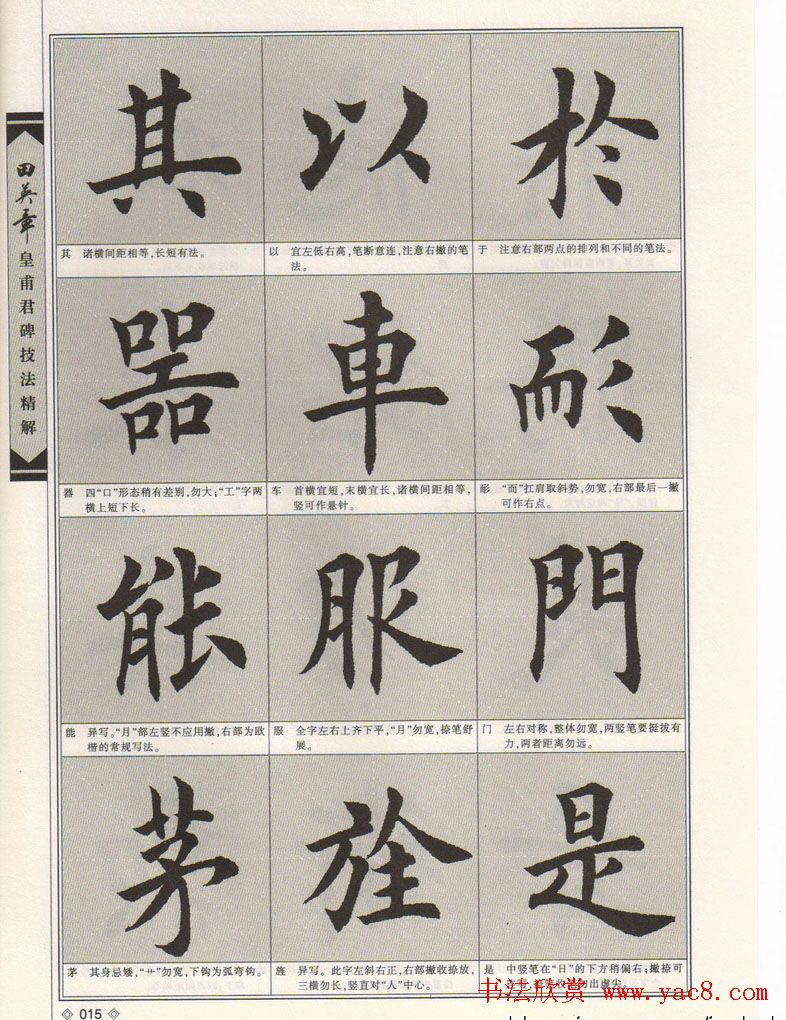 田英章
皇甫君碑技法精解
其 以 於
其 诸横间距相等,长短有法。
以 宜左低右高,笔断意连,注意右撇的笔
法。
于 注意右部两点的排列和不同的笔法。
器 車 耏
器 四“口”形态稍有差别,勿大;“工”字两
横上短下长。
车 首横宜短,末横宜长,诸横间距相等,
竖可作悬针。
耏 “而”扛肩取斜势,勿宽,右部最后一撇
可作右点。
能 服 門
能 异写。“月”部左竖不应用撇,右部为欧
楷的常规写法。
服 全字左右上齐下平,“月”勿宽,捺笔舒
展。
门 左右对称,整体勿宽,两竖笔要挺拔有
力,两者距离勿远。
茅 旌 是
茅 其身忌矮,“艹”勿宽,下钩为弧弯钩。
旌 异写。此字左斜右正,右部撇收捺放,
三横勿长,竖直对“人”中心。
是 中竖笔在“日”的下方稍偏右;撇捺可
勿出虚尖。
书法欣赏 www.yac8.com
015